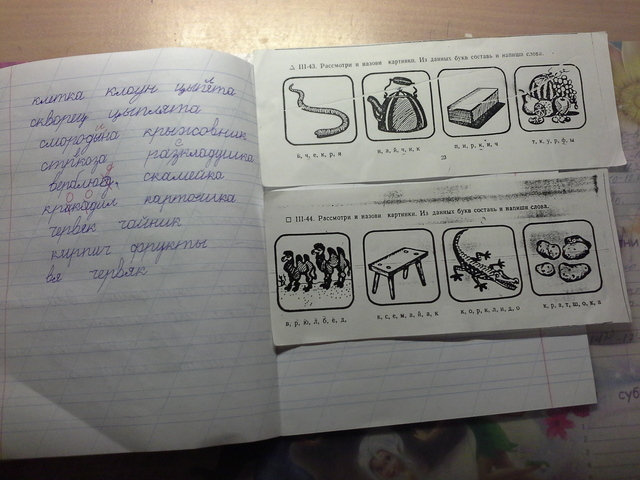 клетка клоун цыплёта
скворец цыплята
смородина крыжовник
стрикоза раскладушка
верблюд, скамейка
кракадил картошка
червек чайник
кирпич фрукты
вя червяк
III-43. Рассмотри и назови картинки. Из данных букв составь и напиши слова.
ь, ч, е, к, р, я
н, а, й, ч, и, к
п, и, р, к, и, ч
т, к, у, р, ф, ы
23
III-44. Рассмотри и назови картинки. Из данных букв составь и напиши слова.
в, р, ю, л, б, е, д,
к, с, е, м, а, й, а, к
к, о, р, к, л, и, д, о
к, р, а, т, ш, о, к, а
суб